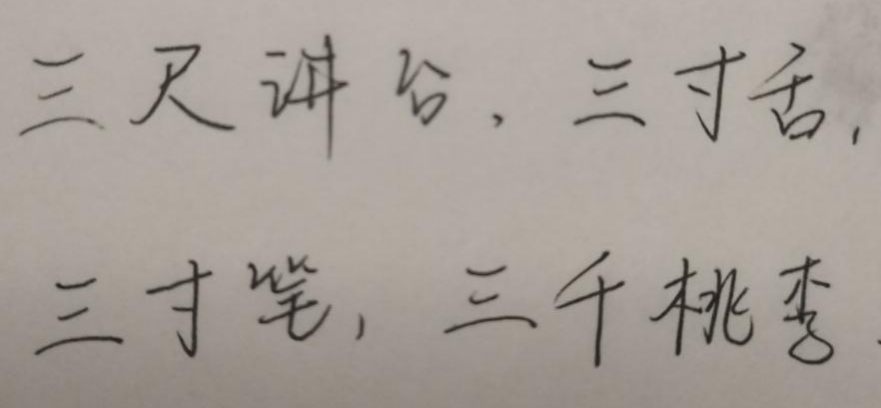 三尺讲台，三寸舌，
三寸笔，三千桃李.